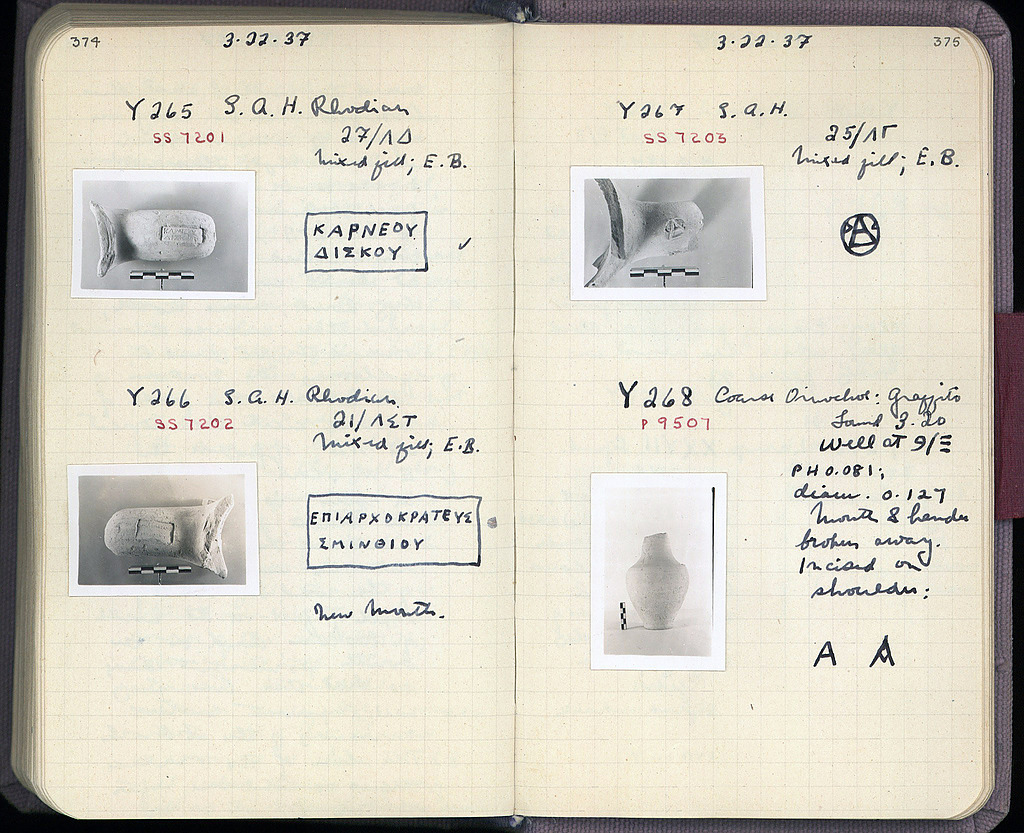 374
3·22·37
Y 265 S. A. H. Rhodian
SS 7201
27/ΛΔ
Mixed fill; E.B.
ΚΑΡΝΕΟΥ
ΔΙΣΚΟΥ
Y 266 S. A. H. Rhodian
SS 7202
21/ΛΣΤ
Mixed fill; E.B.
ΕΠΙΑΡΧΟΚΡΑΤΕΥΣ
ΣΜΙΝΘΙΟΥ
New Month.
3·22·37
375
Y 267 S. A. H.
SS 7203
25/ΛΓ
Mixed fill; E.B.
Y 268 Coarse Oinochoe: Graffito
P 9507
Found 3.20
Well at 9/Ξ
PH 0.081;
diam. 0.127
Mouth & handle
broken away.
Incised on
shoulder:
A A